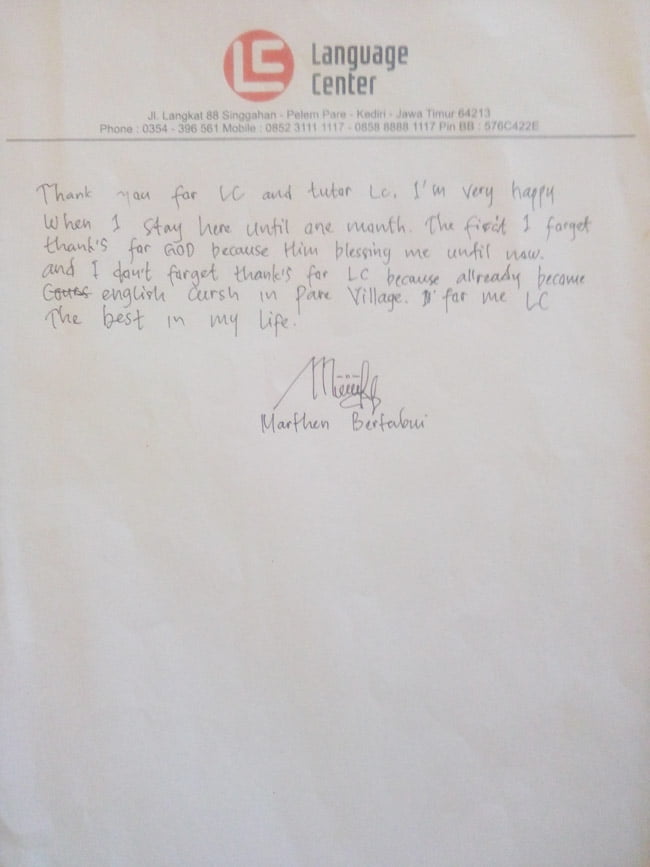 LC Language
Center
Jl. Langkat 88 Singgahan - Pelem Pare - Kediri - Jawa Timur 64213
Phone : 0354 - 396 561 Mobile : 0852 3111 1117 - 0858 8888 1117 Pin BB : 576C422E
Thank you for LC and tutor Lc. I'm very happy
When I stay here until one month. The first I forget
thank's for GOD because Him blessing me until now.
and I don't forget thank's for LC because allready become
english Cursh in Pare Village. for me LC
The best in my life.
Marthen Berfabui